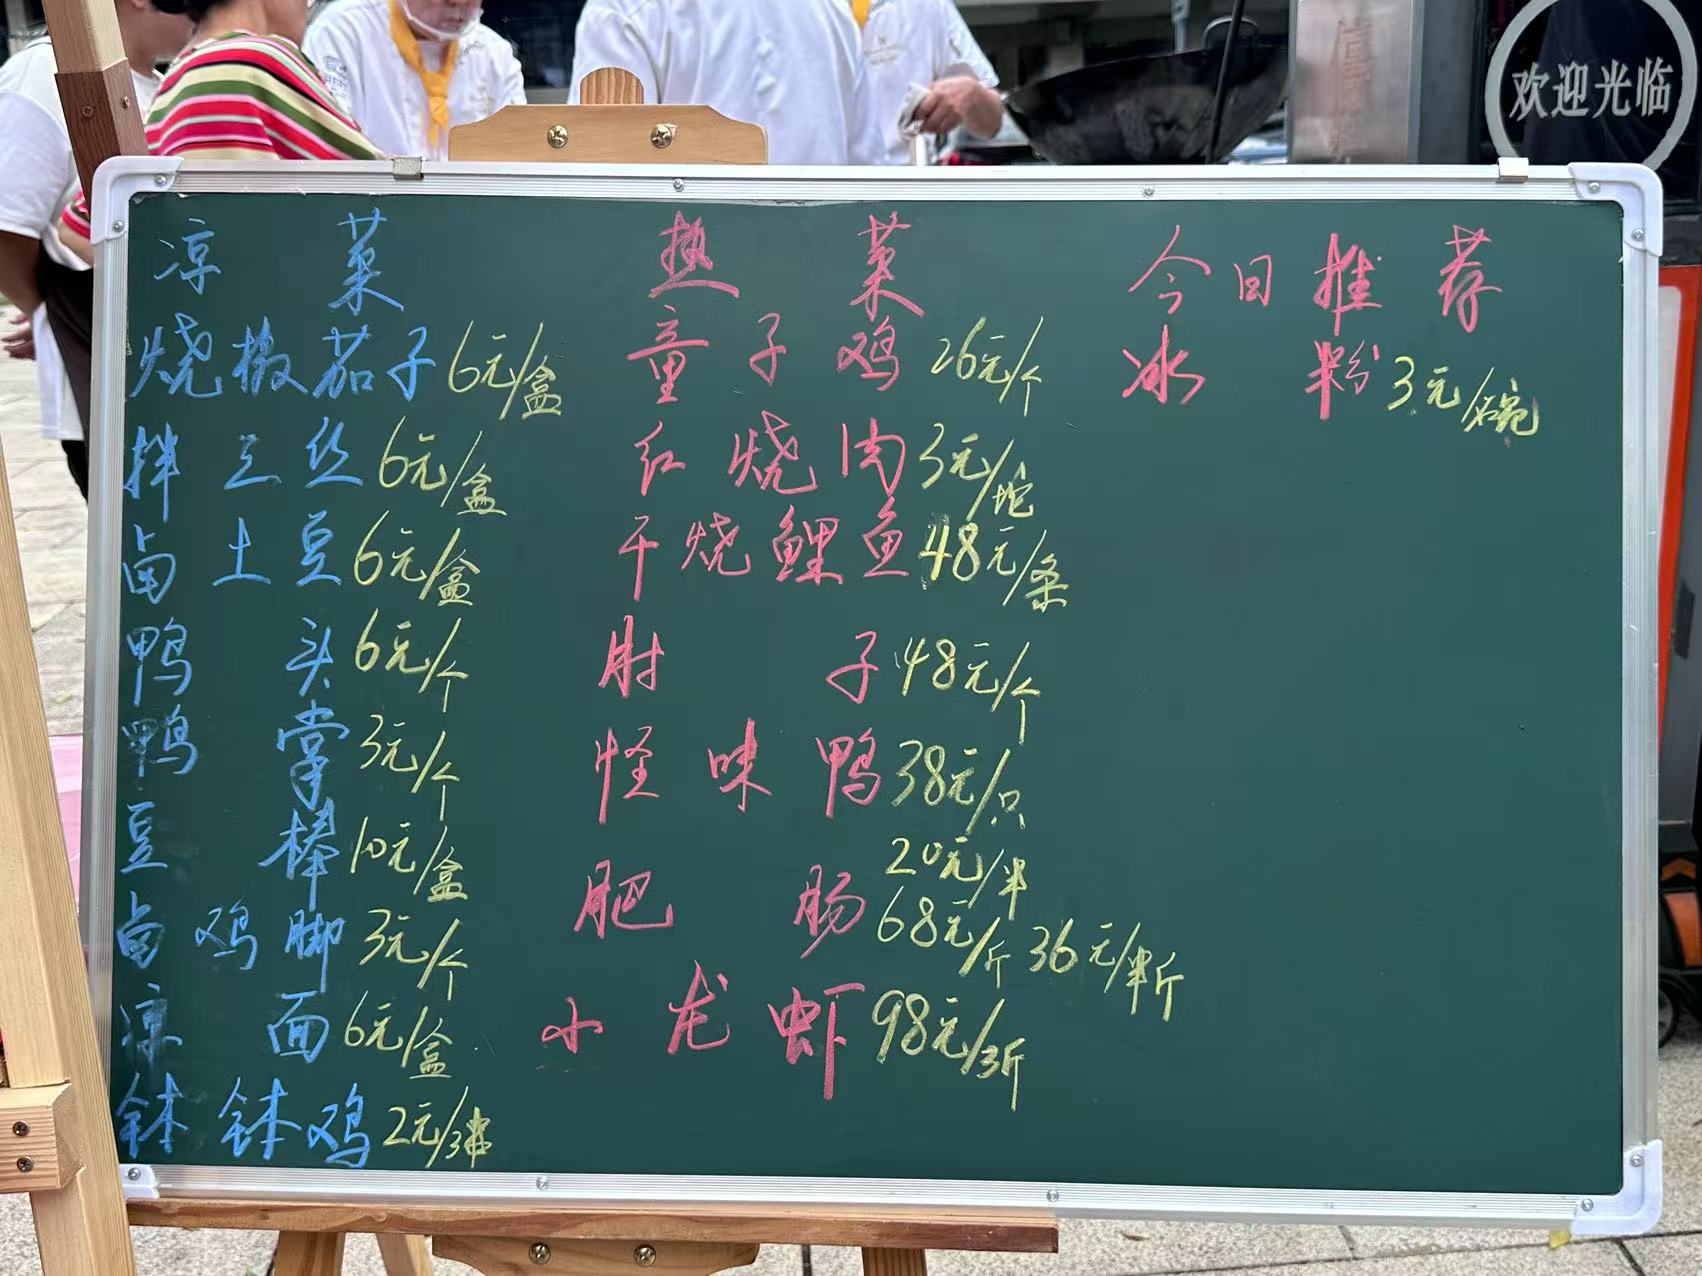 欢迎光临
凉菜
烧椒茄子6元/盒
拌三丝6元/盒
卤土豆6元/盒
鸭头6元/个
鸭掌3元/个
豆棒10元/盒
卤鸡脚3元/个
凉面6元/盒
钵钵鸡2元/3串
热菜
童子鸡26元/个
红烧肉3元/坨
干烧鲤鱼48元/条
肘子48元/个
怪味鸭38元/只
20元/半
肥肠68元/斤 36元/半斤
小龙虾98元/3斤
今日推荐
冰粉3元/碗